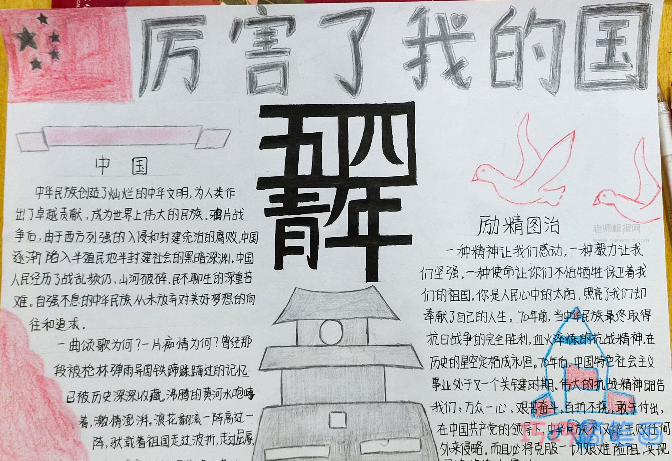 厉害了我的国
五四
青年
中国
中华民族创造了灿烂的中华文明,为人类作
出了卓越贡献,成为世界上伟大的民族。鸦片战
争后,由于西方列强的入侵和封建统治的腐败,中国
逐渐陷入半殖民地半封建社会的黑暗深渊,中国
人民经历了战乱频仍、山河破碎、民不聊生的深重苦
难。自强不息的中华民族从未放弃对美好梦想的向
往和追求。
一曲颂歌为何?一片痴情为何?曾经那
段被枪林弹雨
已被历史深深收藏,沸腾的黄河水咆哮
着,激情澎湃。浪花翻滚一阵高过一
阵,伏载着祖国走过
励精图治
一种精神让我们感动,一种毅力让我
们坚强,一种使命让你们不怕牺牲保卫着我
们的祖国。你是人民心中的太阳,照亮了我们却
奉献了自己的人生。70年前,当中华民族最终取得
抗日战争的完全胜利,血火淬炼的抗战精神,在
历史的星空定格成永恒。70年后,中国特色社会主义
事业处于又一个关键时期,伟大的抗战精神昭告
我们:万众一心,艰苦奋斗,自강不
在中国共产党的领导下,中华民族不仅能
外来侵略,而且必将克服一切艰难险阻,实现
老师板报网